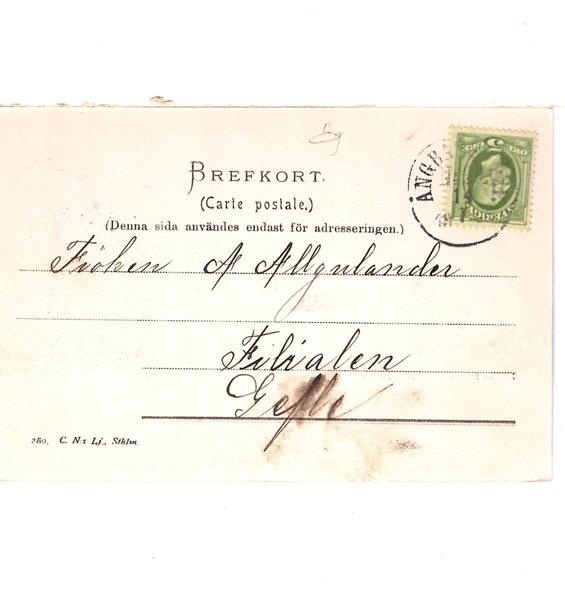 BREFKORT.
(Carte postale.)
(Denna sida användes endast för adresseringen.)
Fröken A Allgulander
Filialen
Gefle
250. C. N:s Lj., Sthlm.
ÅNGB
5